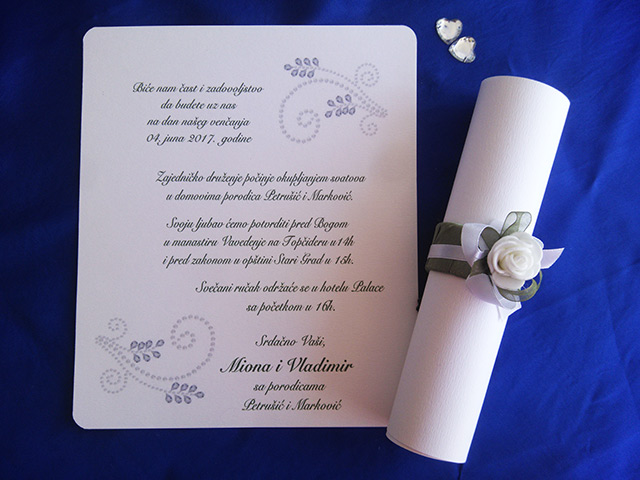 Biće nam čast i zadovoljstvo
da budete uz nas
na dan našeg venčanja
04. juna 2017. godine
Zajedničko druženje počinje okupljanjem svatova
u domovima porodica Petrušić i Marković.
Svoju ljubav ćemo potvrditi pred Bogom
u manastiru Vavedenje na Topčideru u 14h
i pred zakonom u opštini Stari Grad u 15h.
Svečani ručak održaće se u hotelu Palace
sa početkom u 16h.
Srdačno Vaši,
Miona i Vladimir
sa porodicama
Petrušić i Marković